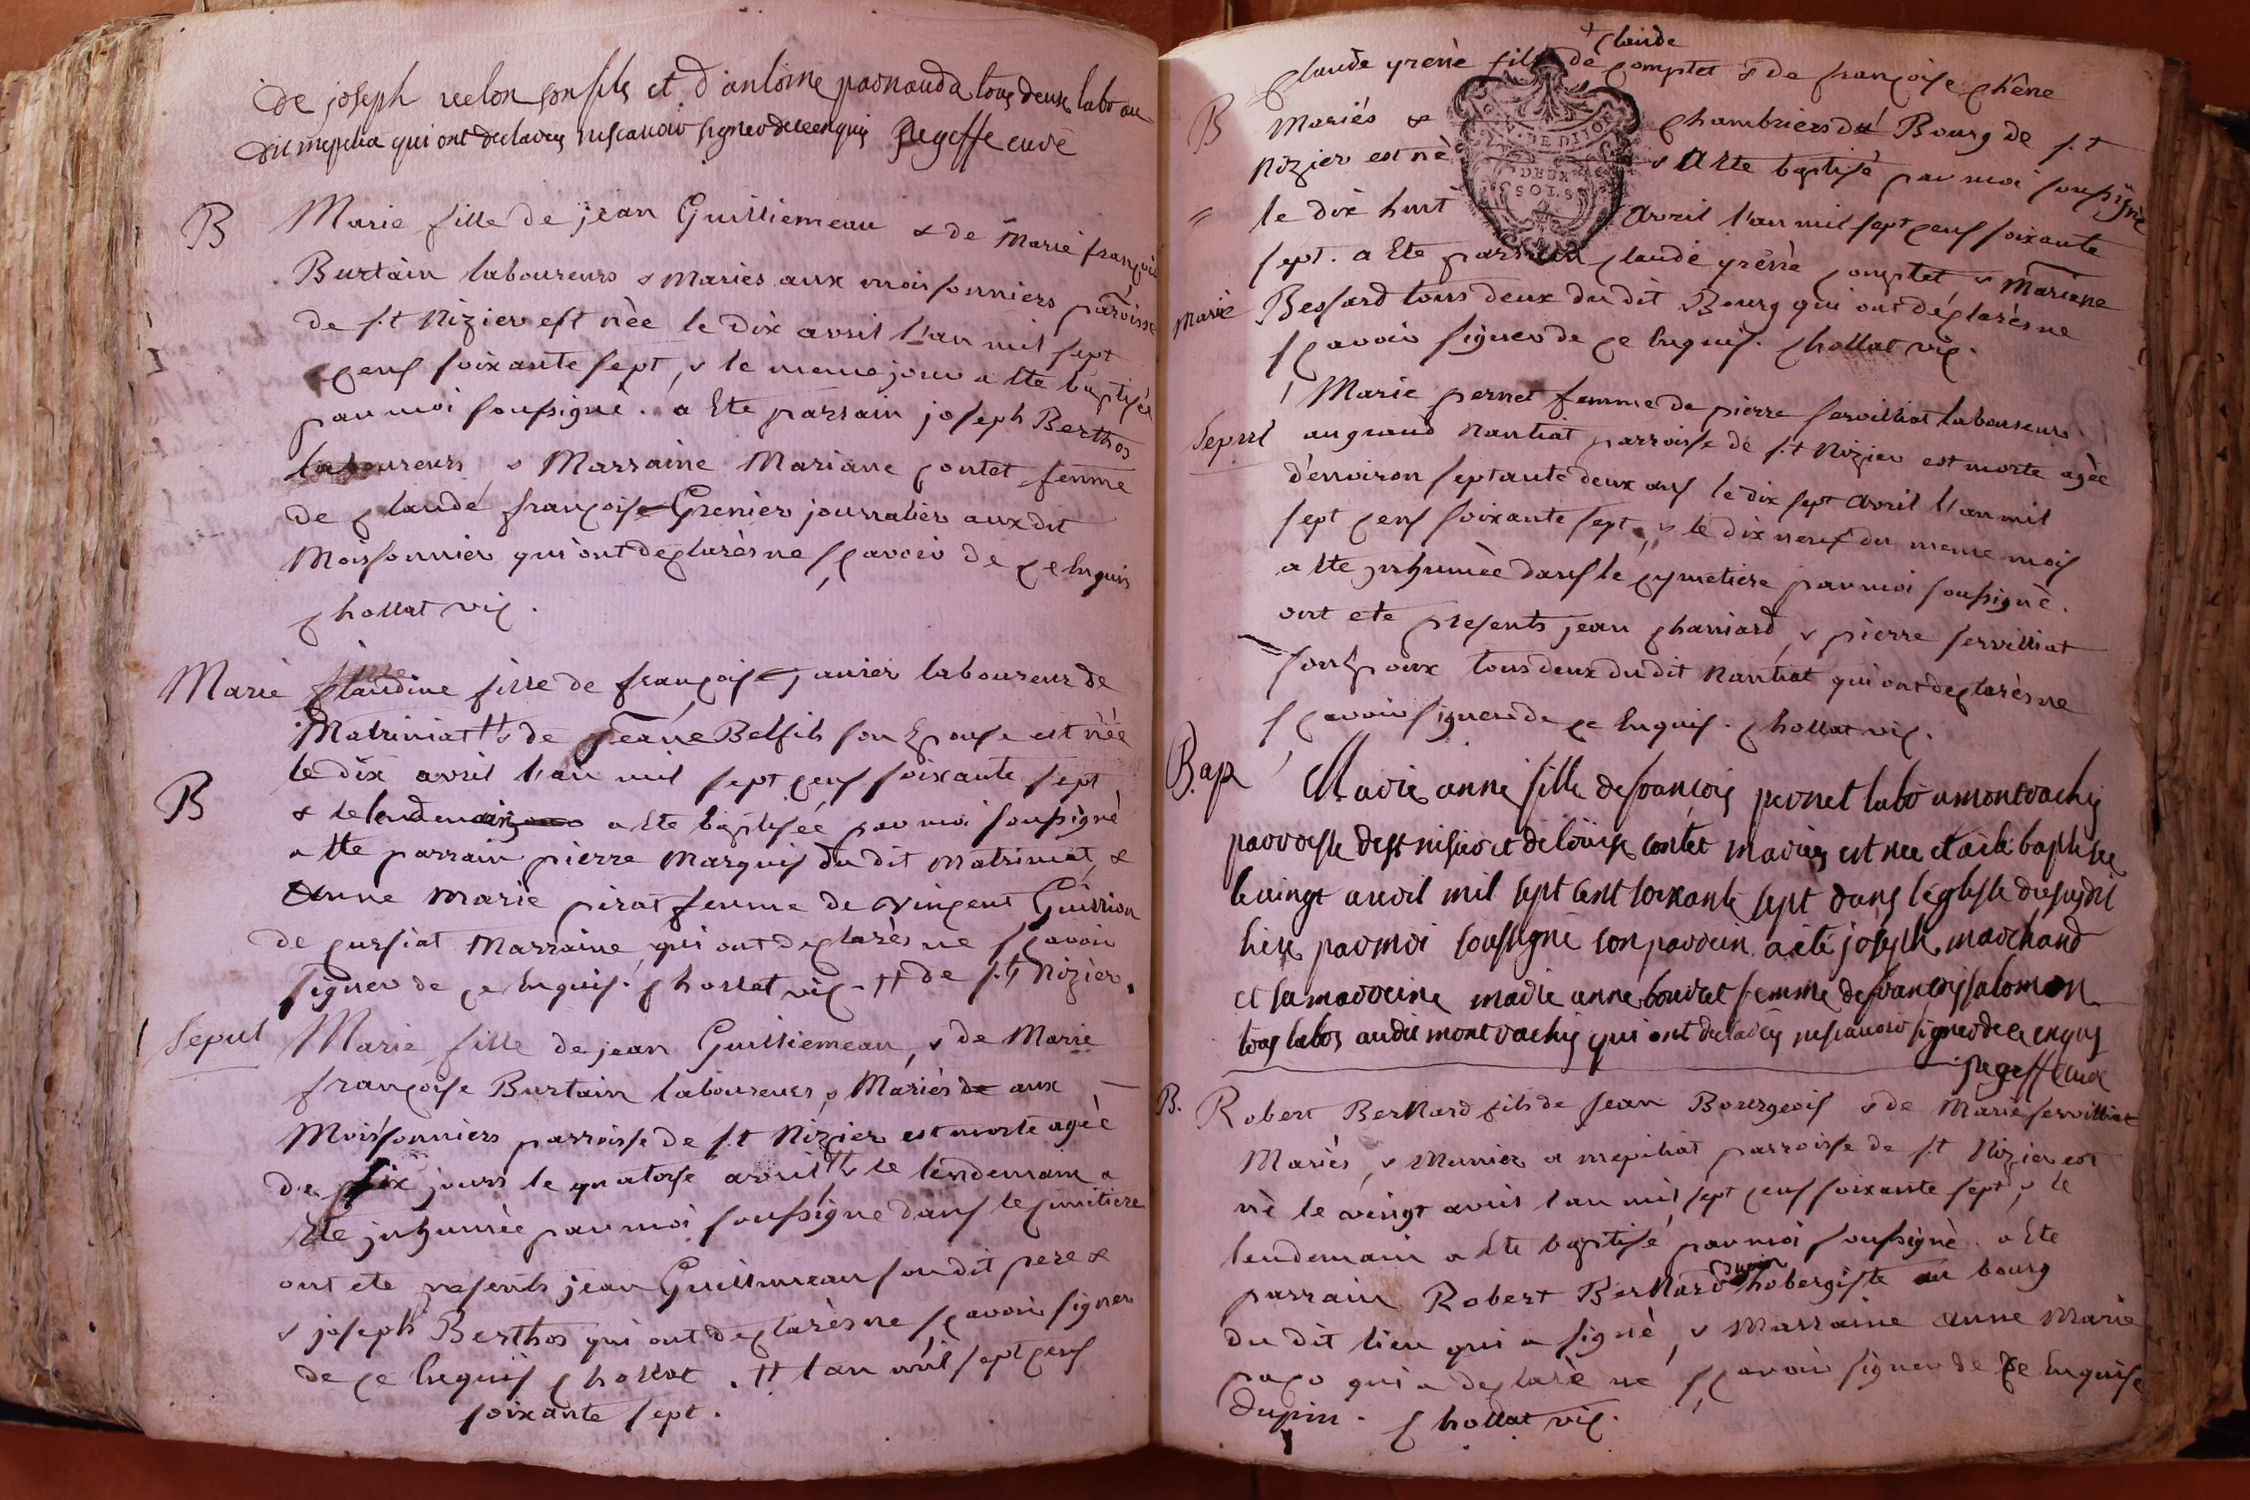 de joseph velon son fils et d'antoine parnaud a tous deux labo au
dit mepilia qui ont declarés nescavoir signer de ce enquis pegeffe curé
B Marie fille de jean Guilliemeau & de Marie françoise
Burtain laboureurs & Mariés aux moissonniers paroisse
de s.t Nizier est née le dix avril l'an mil sept
cens soixante sept, & le meme jour a ete baptisée
par moi soussigné. a Ete parrain joseph Berthos
laboureurs & Marraine Mariane contet femme
de claude françoise Grenier journalier aux dit
Moissonnier qui ont declarès ne scavoir de ce Enquis
chollat vic.
Marie claudine fille de françois janier laboureur de
Matriniat # & de jeane Belfils son Epouse est née
le dix avril l'an mil sept cens soixante sept
B & le lendemain a Ete baptisée par moi soussigné
a Ete parrain pierre Marquis du dit Matriniat, &
Anne Marie pirat femme de vincent Guirion
de cursiat Marraine, qui ont declarès ne scavoir
signer de ce Enquis. chollat vic - # de s.t Nizier.
Sepul Marie fille de jean Guilliemeau, & de Marie
françoise Burtain laboureurs & Mariés de aux
Moissonniers parroisse de s.t Nizier est morte agée
de six jours le quatorse avril # & le lendemain a
Ete inhumée par moi soussigné dans le cimitiere
ont ete presents jean Guilliemeau son dit pere &
& joseph Berthos qui ont declarès ne scavoir signer
de ce Enquis chollat. # l'an mil sept cens
soixante sept.
+ claude
claude yréné fils de comptet & de françoise chêne
B Mariés & chambriers du Bourg de s.t
Nizier est né & a ete baptisé par moi soussigné
le dix huit avril l'an mil sept cens soixante
sept. a Ete parrain claude yréné comptet & Mariane
Marie Bessard tous deux du dit Bourg qui ont déclarès ne
scavoir signer de ce Enquis. chollat vic.
Sepul Marie pernet femme de pierre servilliat laboureurs
au grand Nantiat parroisse de s.t Nizier est morte agée
d'environ septante deux ans le dix sept avril l'an mil
sept cens soixante sept, & le dix neuf du meme mois
a ete inhumée dans le cymetiere par moi soussigné.
ont ete presents jean chaniard, & pierre servilliat
son Epoux tous deux du dit Nantiat qui ont declarès ne
scavoir signer de ce Enquis. chollat vic.
Bap Marie anne fille de françois pernet labo a montrachy
parroisse de st nisier et de loüise contet mariés est née et a été baptisée
le vingt avril mil sept cent soixante sept dans l'eglise du susdit
lieu par moi soussigné son parrein a été joseph marchand
et sa marreine marie anne bouvat femme de françois salomon
tous labos audit montrachy qui ont declarés nescavoir signer de ce enquis
pegeffe curé
B. Robert Bernard fils de jean Bourgeois & de Marie servilliat
Mariés, & Munier a mepiliat parroisse de s.t Nizier est
né le vingt avril l'an mil sept cens soixante sept, & le
lendemain a Ete baptisé par moi soussigné. a Ete
parrain Robert Bernard dupin hobergiste au bourg
du dit lieu qui a signé, & Marraine anne Marie
qui a declaré ne scavoir signer de ce Enquise
dupin. chollat vic.